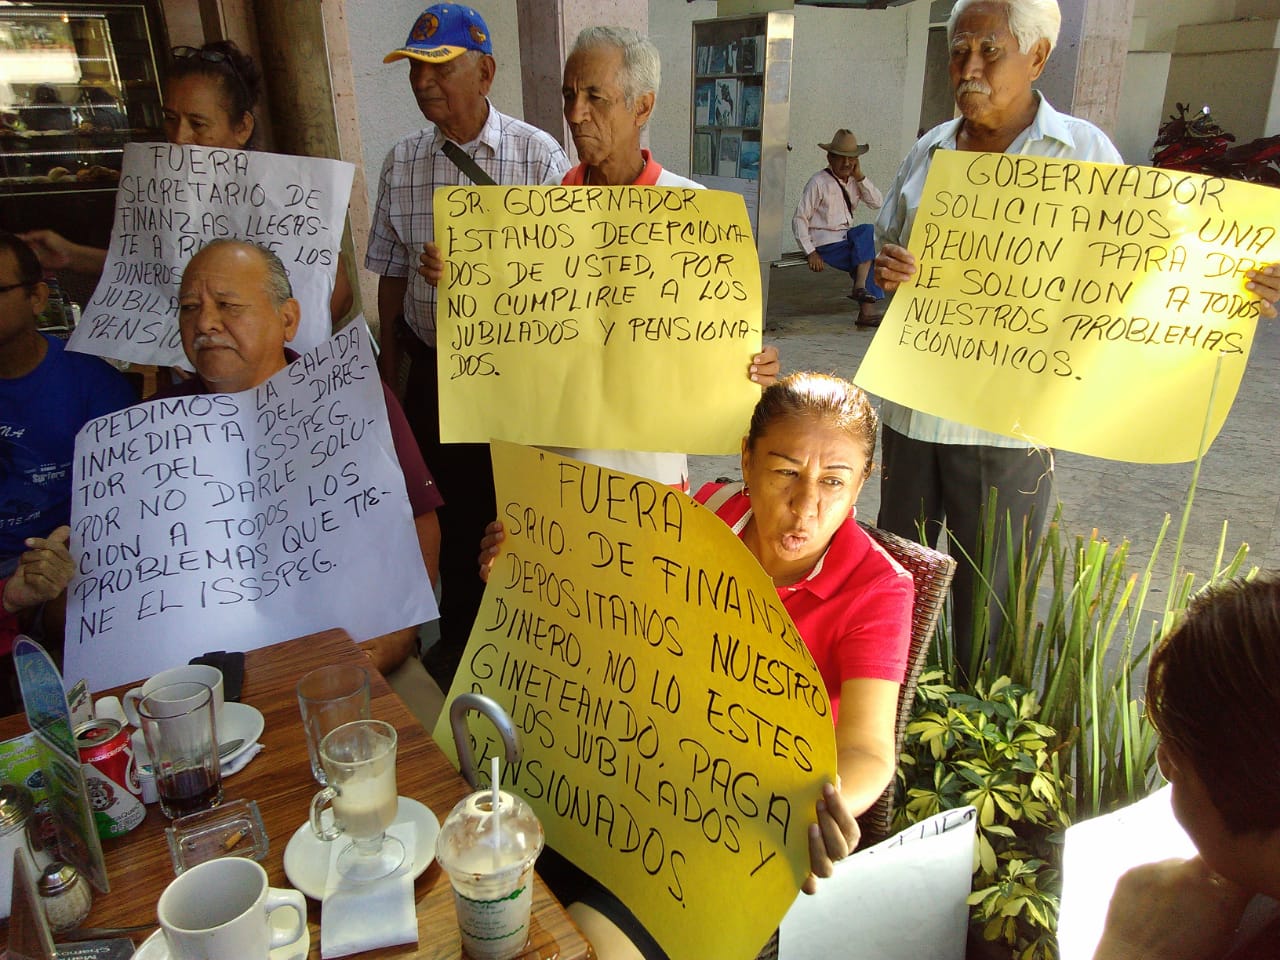 FUERA
SECRETARIO DE
FINANZAS, LLEGAS-
TE A LOS
DINEROS
JUBILA
PENSIO
SR. GOBERNADOR
ESTAMOS DECEPCIONA-
DOS DE USTED, POR
NO CUMPLIRLE A LOS
JUBILADOS Y PENSIONA-
DOS.
GOBERNADOR
SOLICITAMOS UNA
REUNION PARA DAR
LE SOLUCION A TODOS
NUESTROS PROBLEMAS
ECONOMICOS.
PEDIMOS LA SALIDA
INMEDIATA DEL DIREC-
TOR DEL ISSSPEG.
POR NO DARLE SOLU-
CION A TODOS LOS
PROBLEMAS QUE TIE-
NE EL ISSSPEG.
"FUERA"
SRIO. DE FINANZAS
DEPOSITANOS NUESTRO
DINERO, NO LO ESTES
GINETEANDO, PAGA
A LOS JUBILADOS Y
PENSIONADOS.